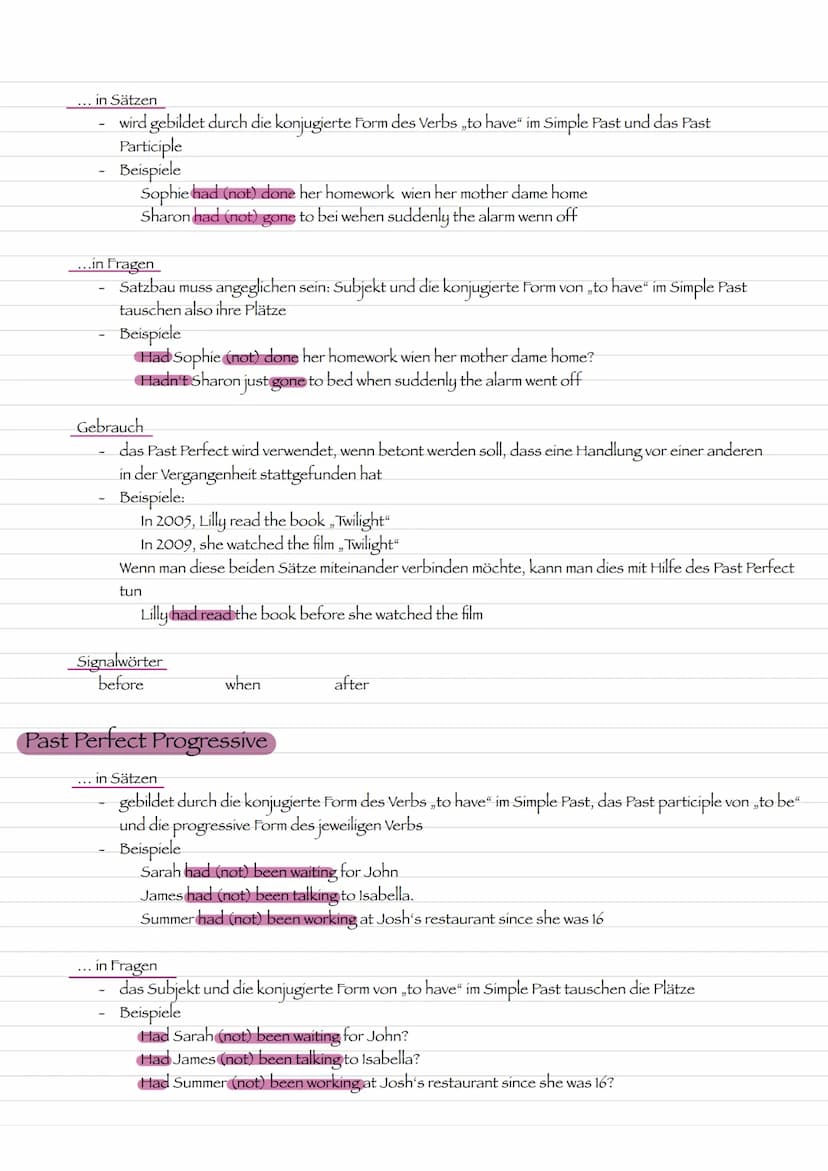 ... in Sätzen
- wird gebildet durch die konjugierte Form des Verbs „to have“ im Simple Past und das Past
Participle
- Beispiele
Sophie had (not) done her homework wien her mother dame home
Sharon had (not) gone to bei wehen suddenly the alarm wenn off
...in Fragen
- Satzbau muss angeglichen sein: Subjekt und die konjugierte Form von „to have“ im Simple Past
tauschen also ihre Plätze
- Beispiele
Had Sophie (not) done her homework wien her mother dame home?
Hadn't Sharon just gone to bed when suddenly the alarm went off
Gebrauch
- das Past Perfect wird verwendet, wenn betont werden soll, dass eine Handlung vor einer anderen
in der Vergangenheit stattgefunden hat
- Beispiele:
In 2005, Lilly read the book „Twilight“
In 2009, she watched the film „Twilight“
Wenn man diese beiden Sätze miteinander verbinden möchte, kann man dies mit Hilfe des Past Perfect
tun
Lilly had read the book before she watched the film
Signalwörter
before when after
Past Perfect Progressive
... in Sätzen
- gebildet durch die konjugierte Form des Verbs „to have“ im Simple Past, das Past participle von „to be“
und die progressive Form des jeweiligen Verbs
- Beispiele
Sarah had (not) been waiting for John
James had (not) been talking to Isabella.
Summer had (not) been working at Josh's restaurant since she was 16
... in Fragen
- das Subjekt und die konjugierte Form von „to have“ im Simple Past tauschen die Plätze
- Beispiele
Had Sarah (not) been waiting for John?
Had James (not) been talking to Isabella?
Had Summer (not) been working at Josh's restaurant since she was 16?